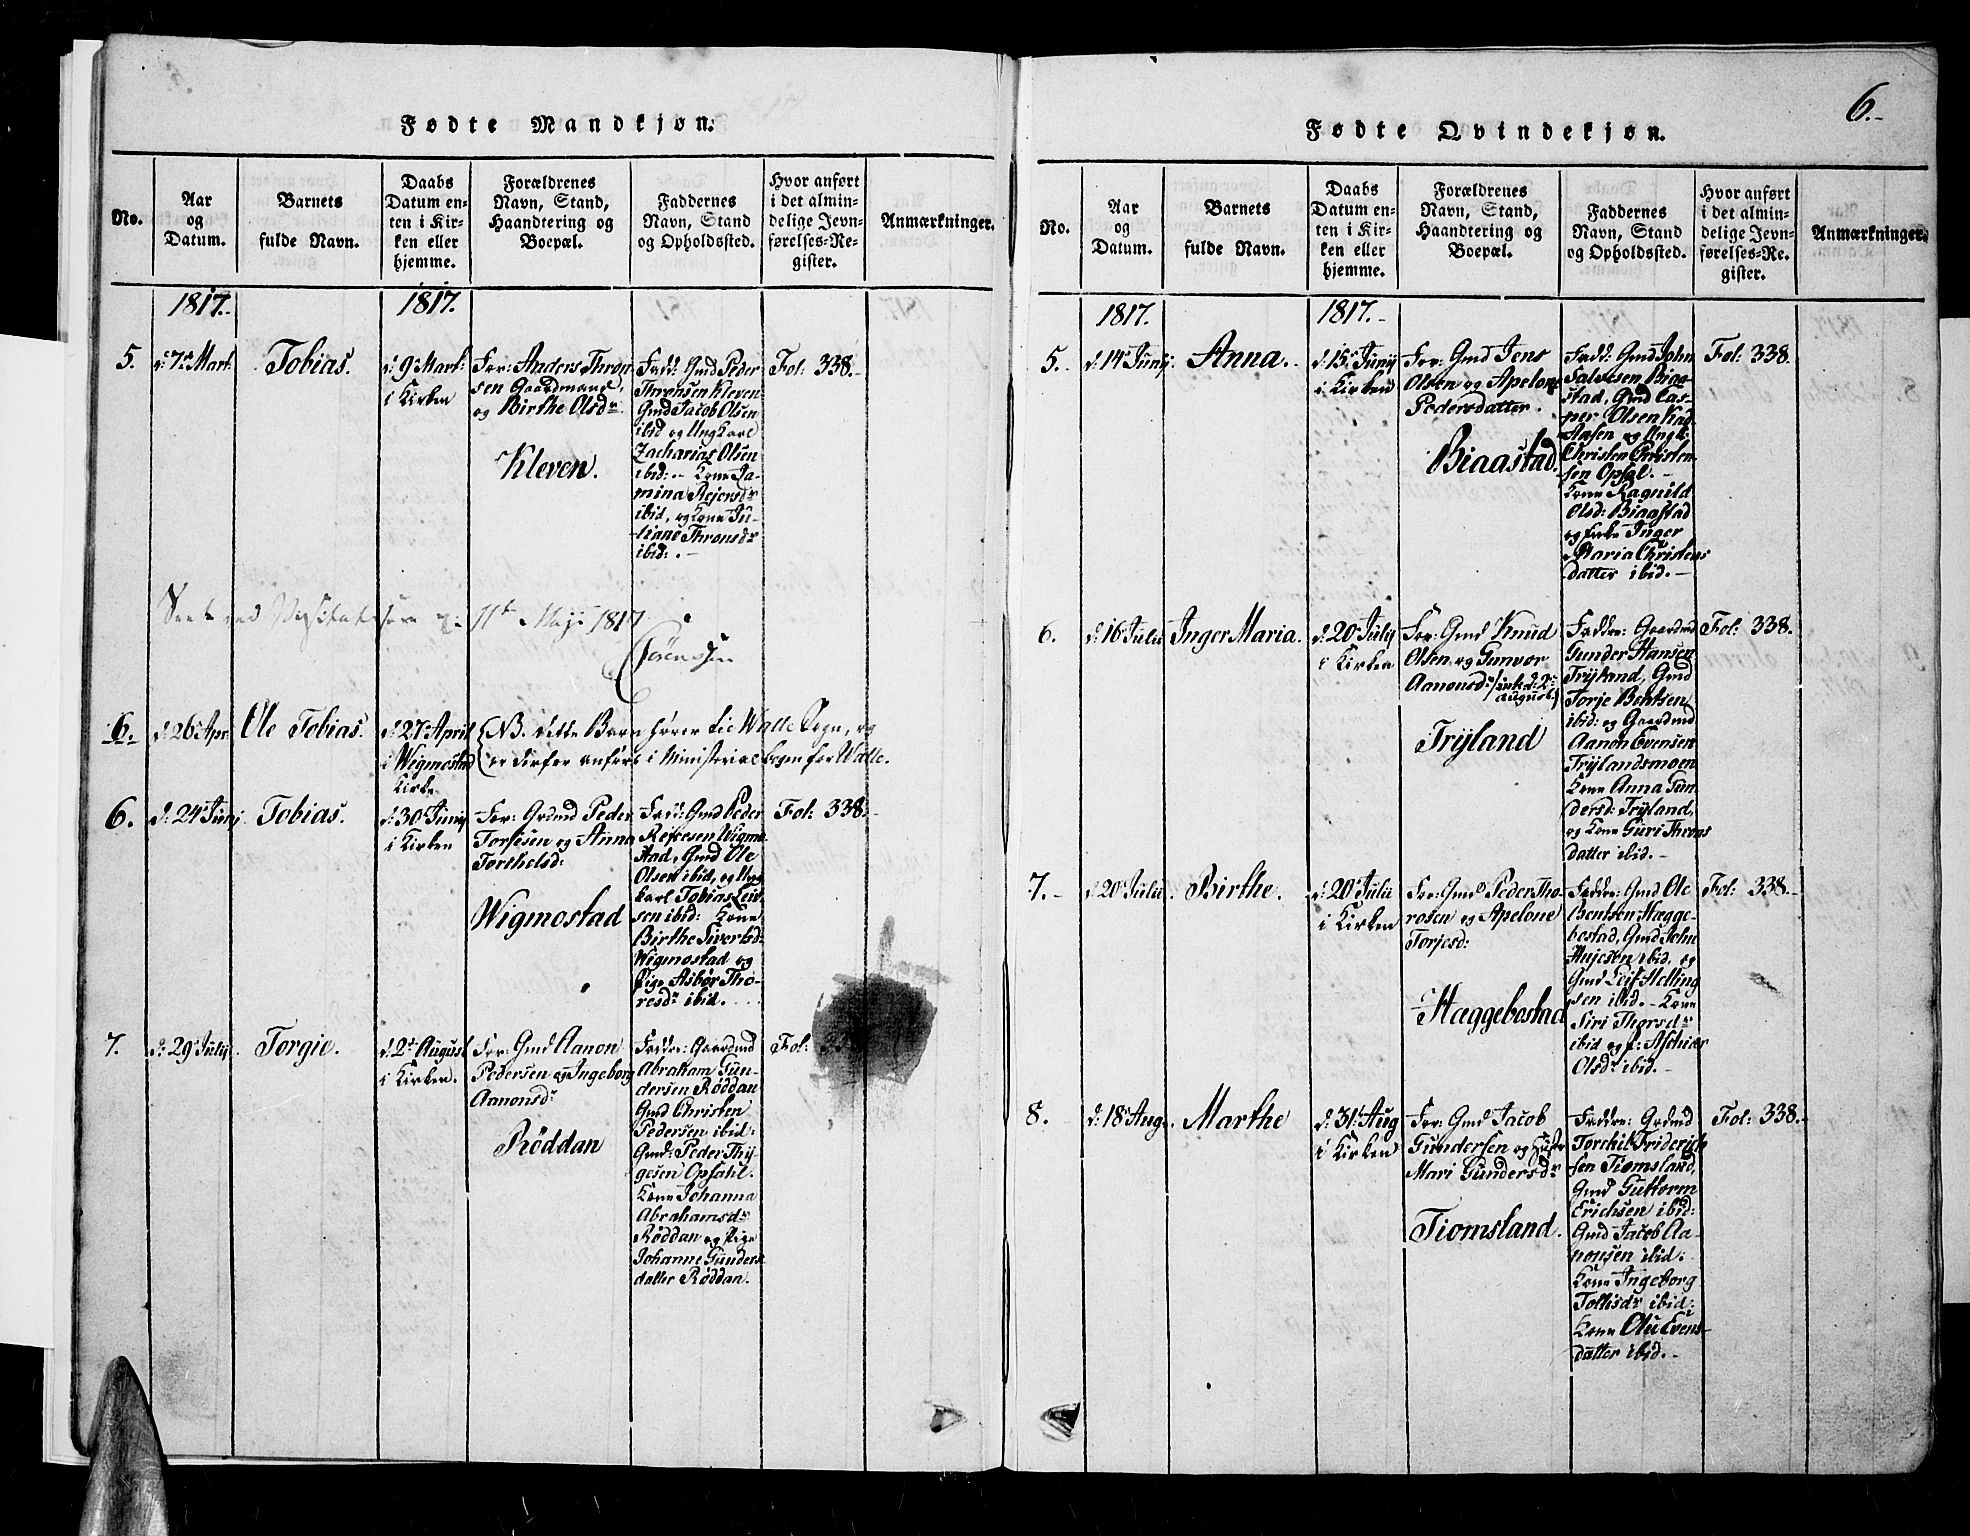 Fødte Mandkjøn.
No.
Aar
og
Datum.
Barnets
fulde Navn.
Daabs
Datum en-
ten i Kir-
ken eller
hjemme.
Forældrenes
Navn, Stand,
Haandtering og
Boepæl.
Faddernes
Navn, Stand
og Opholdssted.
Hvor anført
i det almin-
delige Jevn-
førelses-Re-
gister.
Anmærkninger.
1817.
1817.
5.
d: 7de Mart.
Tobias.
d: 9de Mart.
i Kirken
For: Anders Thron
sen Gaardmand,
og Birthe Olsdr.
Kleven.
Fadd: Gmd Peder
Thronsen Kleven
Gmd Jacob Olsen
ibid og Ungkarl
Zacharias Olsen
ibid: - Kone Ja-
mina Rejersdr
ibid, og Kone Ju-
liane Thronsdr
ibid: . -
Fol: 338.
11te Maji 1817
Sørenssen
6.
d: 26de Apr:
Ole Tobias.
d: 27de April
i Wigmostad
Kirke
NB. dette Barn hører til Walle Sogn, og
er derfor anført i Ministerialbogen for Walle.
6.
d: 24de Junj.
Tobias.
d: 30 Junij
i Kirken
For: Grdmd Peder
Torjesen og Anna
Torkelsd:
Wigmostad
Fadd: Gmd Peder
Reiersen Wigmo
stad, Gmd Ole
Olsen ibid, og Ung
karl Tobias Leif
sen ibid: Kone
Birthe Siversd:
Wigmostad og
Pige Asbør Tho-
resdr ibid.
Fol: 338.
7.
d: 29 Julij.
Torgie.
d: 2de August
i Kirken.
For: Gmd Aanon
Pedersen og Ingeborg
Aanonsdr
Røddan
Faddre: Gaardmd
Abraham Gun-
dersen Røddan
Gmd Christen
Pedersen ibid:
Gmd: Peder Thy-
gesen Opsahl.
Kone Johanna
Abrahamsdr
Røddan og Pige
Johanne Gunders
datter Røddan.
Fol:
6.
Fødte Qvindekjøn.
No.
Aar
og
Datum.
Barnets
fulde Navn.
Daabs
Datum en-
ten i Kir-
ken eller
hjemme.
Forældrenes
Navn, Stand,
Haandtering og
Boepæl.
Faddernes
Navn, Stand
og Opholdssted.
Hvor anført
i det almin-
delige Jevn-
førelses-Re-
gister.
Anmærkninger.
1817.
1817.
5.
d: 14de Junij
Anna.
d: 15de Junij
i Kirken
For: Gmd Jens
Olsen og Apelone
Pedersdatter.
Biaastad.
Fadd: Gmd John
Salvesen Biaa-
stad, Gmd Cas-
per Olsen
Aasen og Ungk:
Christen Christen
sen Opsal. -
Kone Ragnild
Olsd: Biaastad
og Inger
Maria Christens
datter ibid. -
Fol: 338.
6.
d: 16 Julii
Inger Maria.
d: 20 Julij
i Kirken
For: Gmd Knud
Olsen og Gunvor
Aanonsdr
August.
Tryland
Faddre: Gaardmd
Gunder Hansen
Tryland, Gmd
Torje Bentsen
ibid: og Gaardmd
Aanon Evensen
Trylandsmoen
Kone Anna Gun
dersd: Tryland,
og Kone Guri Throns
datter ibid. -
Fol: 338.
7.
d: 20de Julii.
Birthe.
d: 20de Julii
i Kirken
For: Gmd Peder Tho-
rosen og Apelone
Torjesd:
Hæggebostad
Faddre: Gmd Ole
Bentsen Hægge-
bostad, Gmd John
ibid, og
Gmd Leif Helling
sen ibid. - Kone
Siri Thorsdr
ibid og
Olsdr ibid. -
Fol: 338.
8.
d: 18de Aug.
Marthe
d: 31te Aug
i Kirken
For: Gmd Jacob
Gundersen og
Mari Gundersdr
Tiomsland.
Faddre: Grdmd
Torchil Friderich
sen Tiomsland,
Gmd Guttorm
Erichsen ibid:
Gmd Jacob Aa-
nonsen ibid.
Kone Ingeborg
Tollisdr ibid:
Kone Olu Evens-
datter ibid. -
Fol: 338.